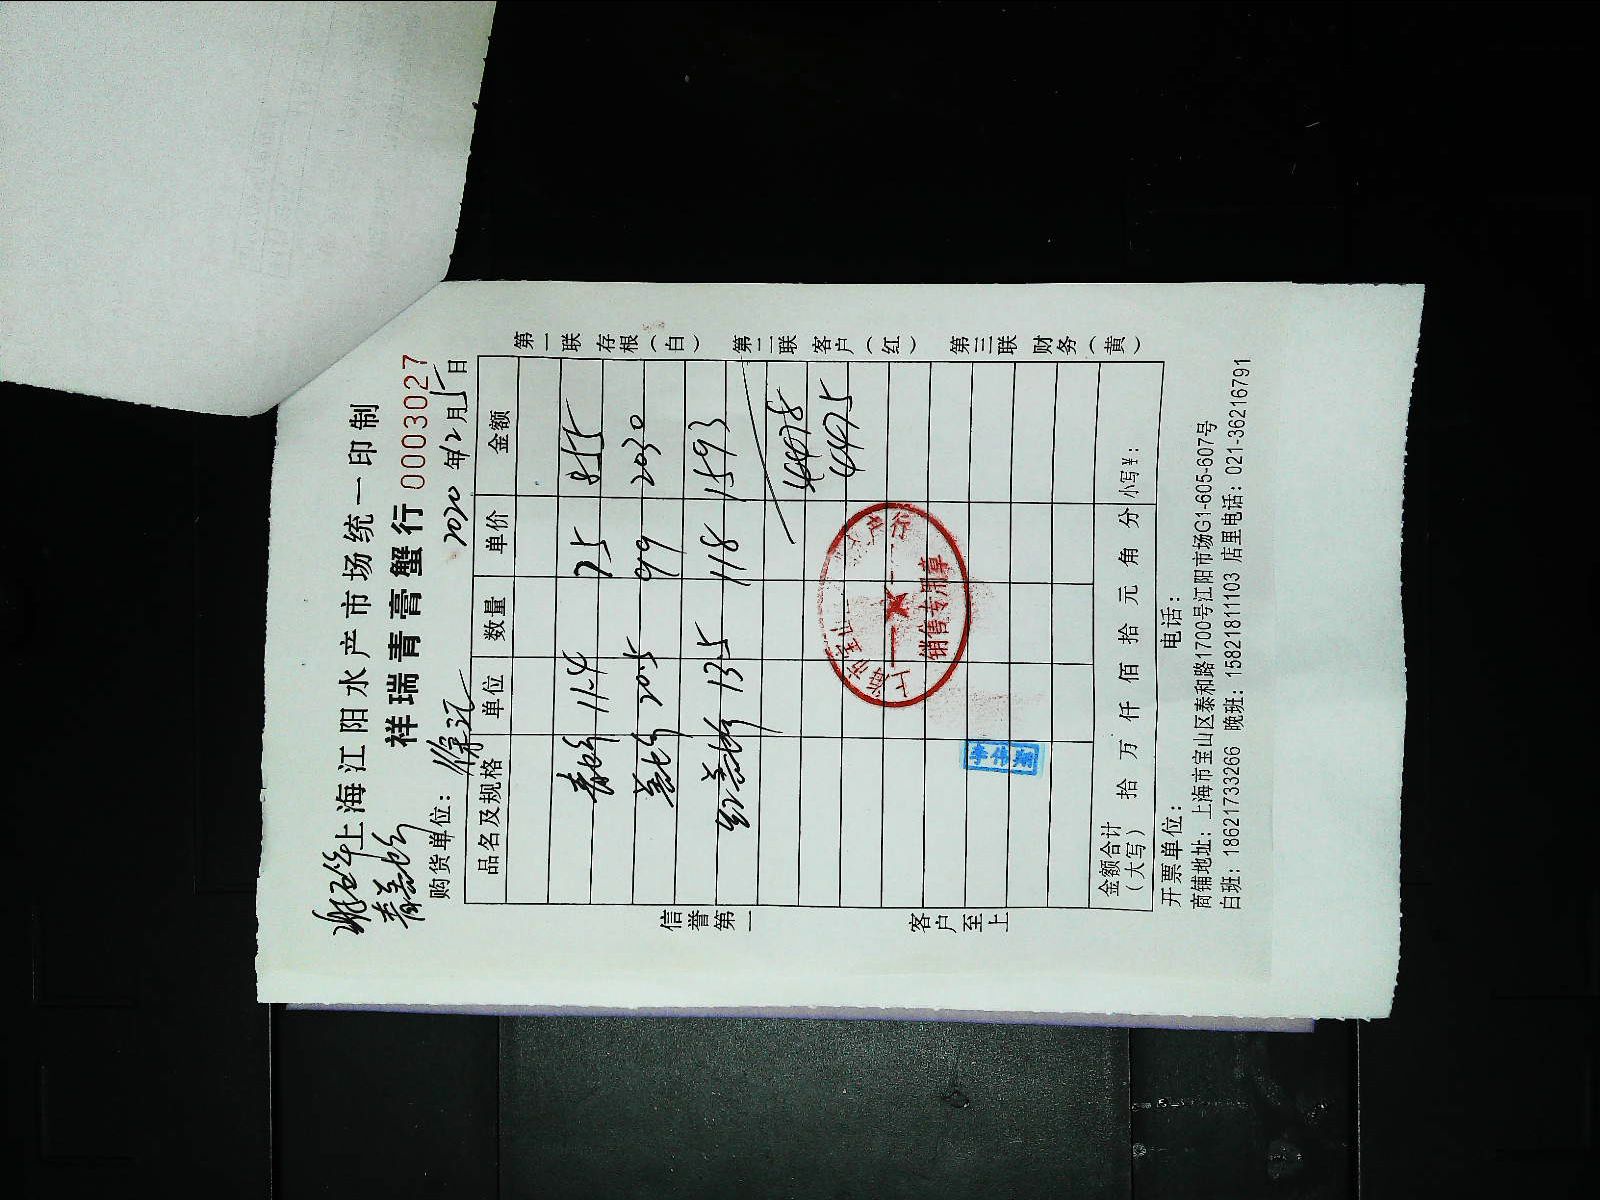 上海江阳水产市场统一印制
祥瑞青膏蟹行 0003027
购货单位： 2020年12月15日
品名及规格 单位 数量 单价 金额
11.4 75 855
20.5 99 2030
13.5 118 1593
4478
4475
金额合计（大写） 拾 万 仟 佰 拾 元 角 分 小写¥：
开票单位： 电话：
商铺地址：上海市宝山区泰和路1700号江阳市场G1-605-607号
白班：18621733266 晚班：15821811103 店里电话：021-36216791
信誉第一
客户至上
第一联 存根（白）
第二联 客户（红）
第三联 财务（黄）
上海市宝山
产行
销售专用章
李伟翔